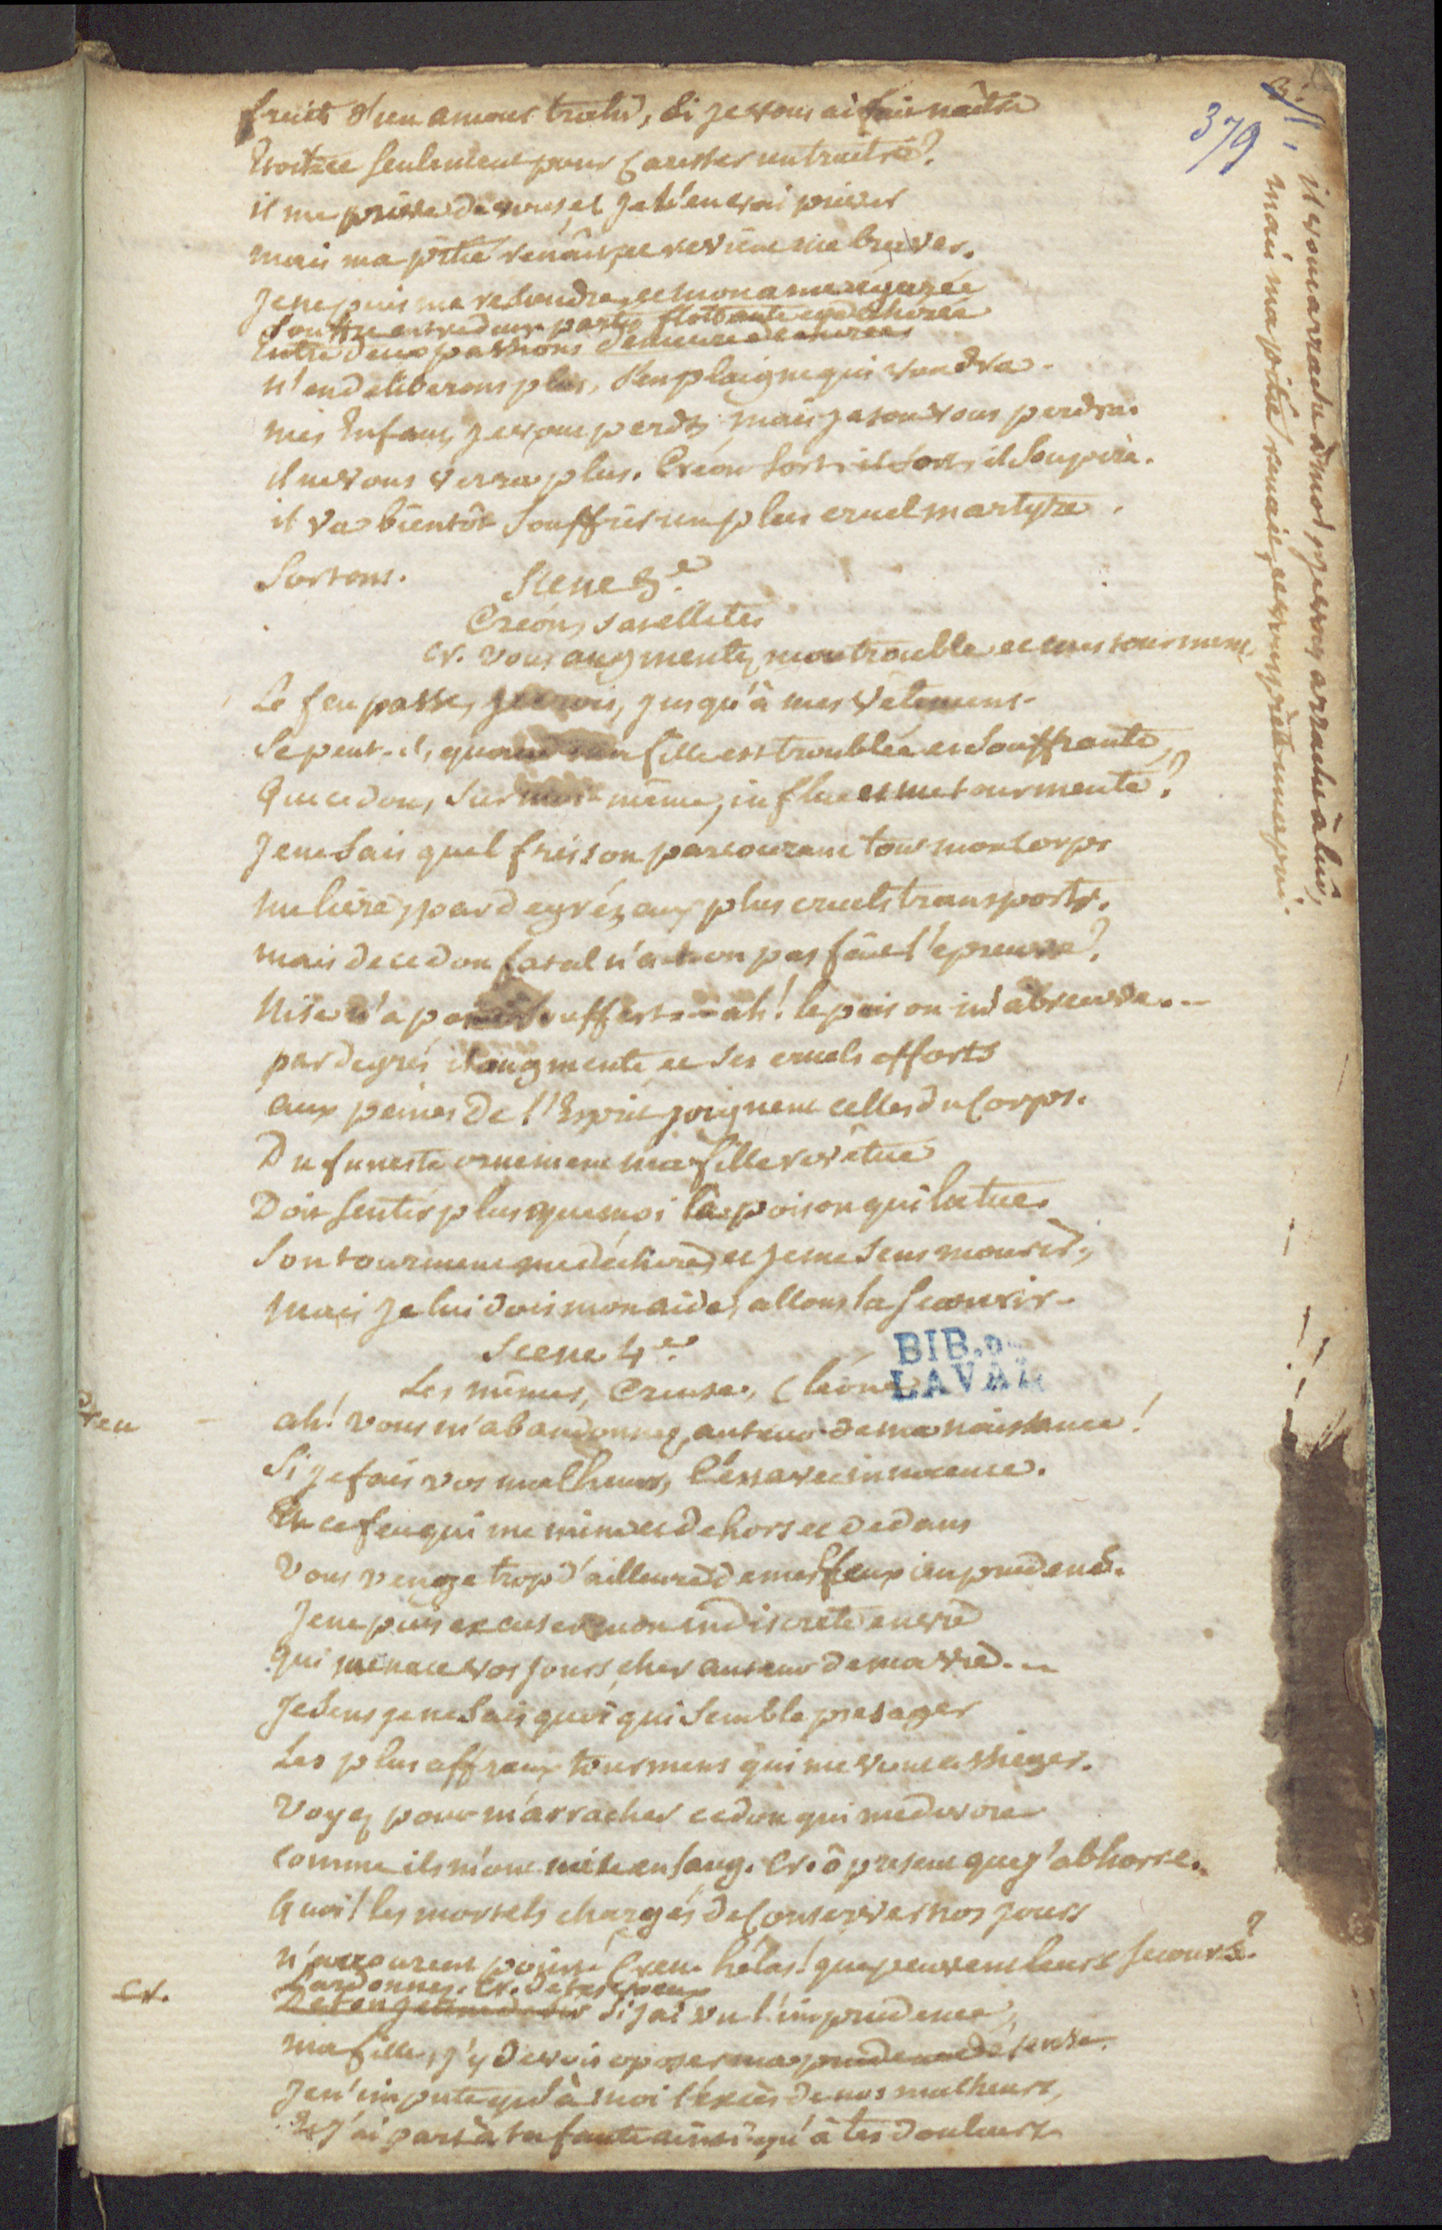 379
fruits d'un amour trahi, si je vous ai fait naître
Etoit-ce seulement pour caresser un traître?
il me prive de vous, et je l'en vai priver
mais ma pitié renaît, et revient me braver.
Je ne puis me resoudre, et mon ame égarée
Souffre entre deux partis flottante et déchirée
Entre deux passions demeure déchirée
n'en deliberons plus, s'en plaigne qui voudra.
mes Enfans, je vous perds, mais Jason vous perdra.
il ne vous verra plus. Créon sort, il sort, il soupire.
il va bientôt souffrir un plus cruel martyre.
Sortons.
Scene 3.e
Créon, satellites
Cr. vous augmentez mon trouble et mes tourmens,
Le feu passe, je crois, jusqu'à mes vêtemens.
Se peut-il, quand ma fille est troublée et souffrante,
Que ce don, sur moi-même, influe et me tourmente?
Je ne sais quel frisson parcourant tout mon corps
me livre, par degrés, aux plus cruels transports.
mais de ce don fatal n'a-t-on pas fait l'épreuve?
Nise n'a point souffert - ah! le poison m'abreuve...
par degrés il augmente et ses cruels efforts
aux peines de l'Esprit joignent celles du Corps.
Du funeste ornement ma fille revêtue
Doit sentir plus que moi le poison qui la tue.
Son tourment me déchire, et je me sens mourir;
mais je lui dois mon aide, allons la secourir.
Scene 4.e
Les mêmes, Creuse, Cléone
BIB. D
LAVAL
Creu ah! vous m'abandonnez, auteur de ma naissance!
Si je fais vos malheurs, c'est avec innocence.
Et ce feu qui me mine et dehors et dedans
Vous venge trop d'ailleurs de mes feux imprudens.
Je ne puis excuser mon indiscrete envie
qui menace vos jours, cher auteur de ma vie...
Je sens je ne sais quoi qui semble presager
Les plus affreux tourmens qui me vont assieger.
Voyez pour m'arracher ce don qui me devore
comme ils m'ont mise en sang. Cr. ô present que j'abhorre.
Quoi! les mortels chargés de Conserver nos jours
n'accourent point! Creu. hélas! que peuvent leurs secours?
Pardonnez. Cr. de tes vœux
Cr. si j'ai vu l'imprudence,
ma fille, j'y devois oposer ma prudence
Je n'impute qu'à moi l'excès de nos malheurs,
Et j'ai part à ta faute ainsi qu'à tes douleurs
il vous arrache à moi, je vous arrache à lui,
mais ma pitié renaît, et vous prête un apui.